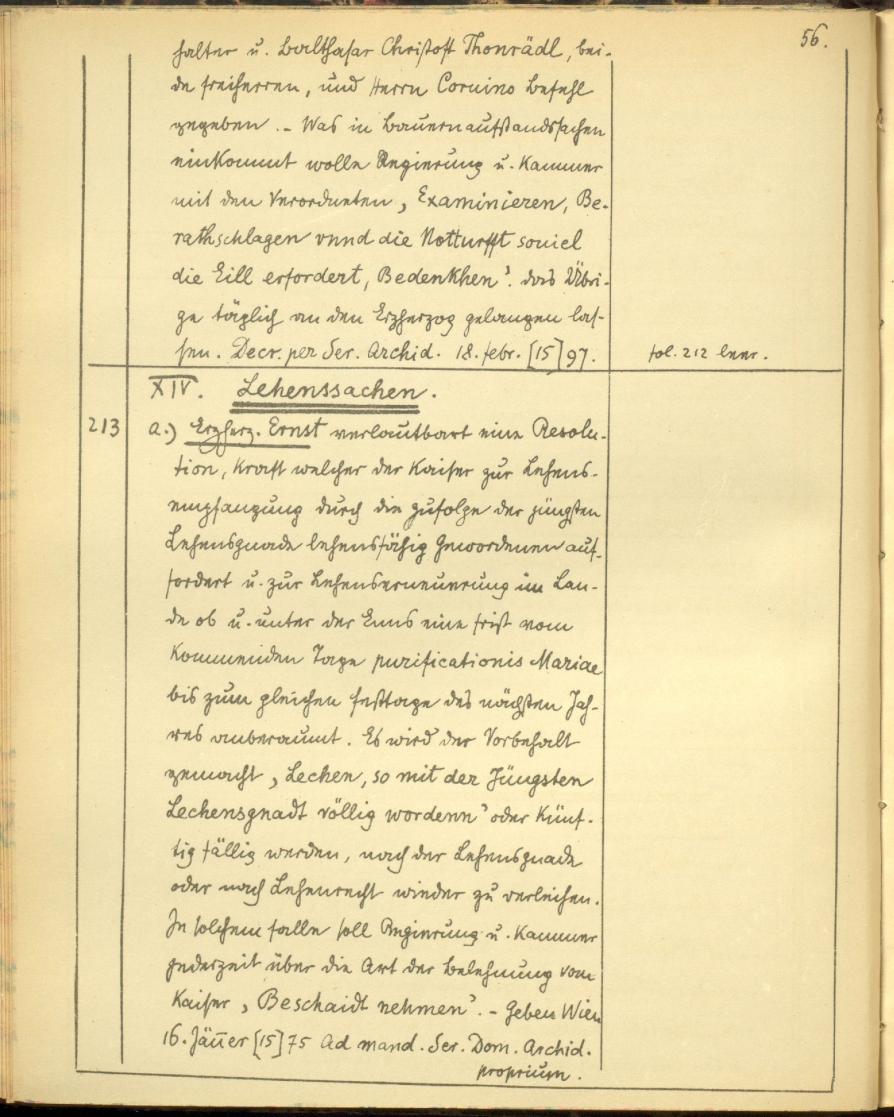 56.
halter u. Balthasar Christoft Thonrädl, bei-
de freiherren, und Herrn Coruino Befehl
gegeben. - Was in Bauernaufstandssachen
einkommt wolle Regierung u. Kammer
mit den Verordneten, "Examinieren, Be-
rathschlagen vnnd die Notturfft souiel
die Eill erfordert, Bedenkhen". das Übri-
ge täglich an den Erzherzog gelangen las-
sen. Decr. per Ser. Archid. 18. febr. [15]97.
fol. 212 leer.
XIV. Lehenssachen.
213 a.) Erzherz. Ernst verlautbart eine Resolu-
tion, kraft welcher der Kaiser zur Lehens-
empfangung durch die zufolge der jüngsten
Lehensgnade lehensfähig Gewordenen auf-
fordert u. zur Lehenserneuerung im Lan-
de ob u. unter der Enns eine frist vom
kommenden Tage purificationis Mariae
bis zum gleichen festtage des nächsten Jah-
res anberaumt. Es wird der Vorbehalt
gemacht, "Lechen, so mit der Jüngsten
Lechensgnadt völlig wordenn" oder künf-
tig fällig werden, nach der Lehensgnade
oder nach Lehenrecht wieder zu verleihen.
In solchem falle soll Regierung u. Kammer
jederzeit über die Art der Belehnung vom
Kaiser "Beschaidt nehmen". - Geben Wien
16. Jäner [15]75 Ad mand. Ser. Dom. Archid.
proprium.